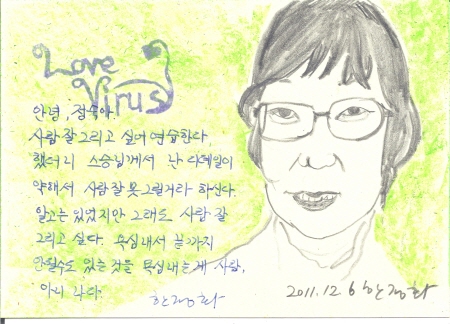 Love
Virus
안녕, 정숙아.
사람 잘 그리고 싶어 연습한다
했더니 스승님께서 난 디테일이
약해서 사람 잘 못 그릴거라 하신다.
알고는 있었지만 그래도 사람 잘
그리고 싶다. 욕심내서 끝까지
안될수도 있는 것을 욕심내는 게 사람,
아니 나다.
한정화
2011.12.6 한정화